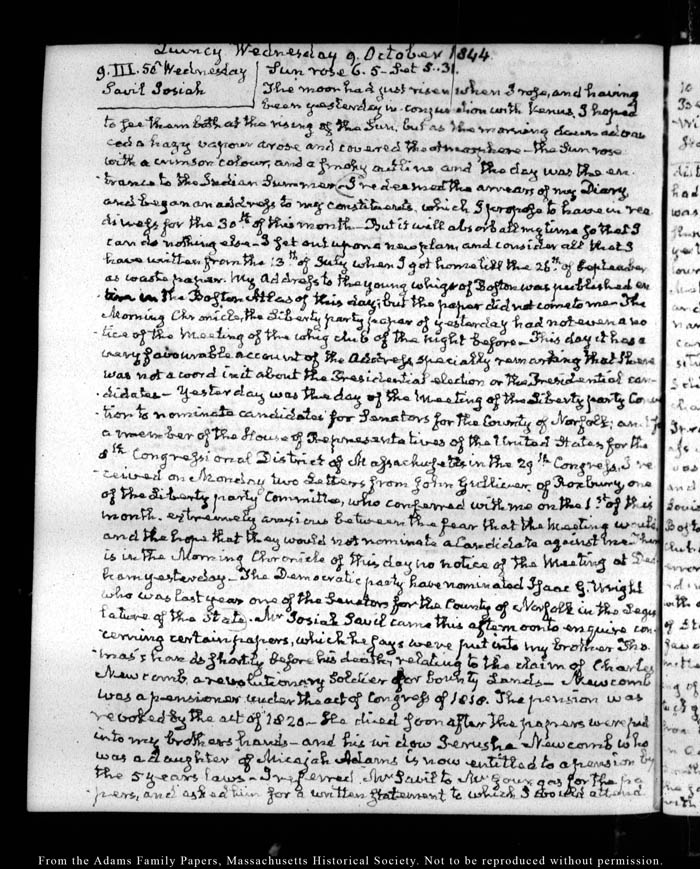 Quincy Wednesday 9. October 1844.
9. III. 50' Wednesday
Savil Josiah
Sun rose 6. 5 - Set 5. 31.
The moon had just risen when I rose, and having
been yesterday in conjunction with Venus, I hoped
to see them both at the rising of the Sun, but as the morning dawn advan
ced a hazy vapour arose and covered the atmosphere - the Sun rose
with a crimson colour, and a smoky outline and the day was the en
trance to the Indian Summer - I redeemed the arrears of my Diary
and began an address to my constituents, which I propose to have in rea
diness for the 30th of this month - But it will absorb all my time so that I
can do nothing else - I set out upon a new plan, and consider all that I
have written from the 13th of July when I got home till the 28th of September
as waste paper. My Address to the young whigs of Boston was published en
tire in the Boston Atlas of this day; but the paper did not come to me - The
Morning Chronicle, the Liberty party paper of yesterday had not even a no
tice of the Meeting of the whig club of the night before - This day it has a
very favourable account of the Address specially remarking that there
was not a word in it about the Presidential election or the Presidential can
didates - Yesterday was the day of the Meeting of the Liberty party Conven
tion to nominate candidates for Senators for the County of Norfolk; and for
a member of the House of Representatives of the United States, for the
8th Congressional District of Massachusetts in the 29th Congress. I re
ceived on Monday two Letters from John of Roxbury, one
of the Liberty party Committee, who conferred with me on the 1st of this
month. extremely anxious between the fear that the Meeting would
and the hope that they would not nominate a Candidate against me. There
is in the Morning Chronicle of this day no notice of the Meeting at Ded
ham yesterday - The Democratic party have nominated Isaac G. Wright
who was last year one of the Senators for the County of Norfolk in the Legis
lature of the State. Mr Josiah Savil came this afternoon to enquire con
cerning certain papers, which he says were put into my brother Tho
mas's hands shortly before his death, relating to the claim of Charles
Newcomb, a revolutionary Soldier for bounty Lands - Newcomb
was a pensioner under the act of Congress of 1818. The pension was
revoked by the act of 1820 - He died soon after the papers were put
into my brothers hands - and his widow Jerusha Newcomb, who
was a daughter of Micajah Adams is now entitled to a pension by
the 5 years laws - I referred Mr Savil to Mr Gourgas for the pa
pers, and asked him for a written statement to which I would attend
From the Adams Family Papers, Massachusetts Historical Society. Not to be reproduced without permission.